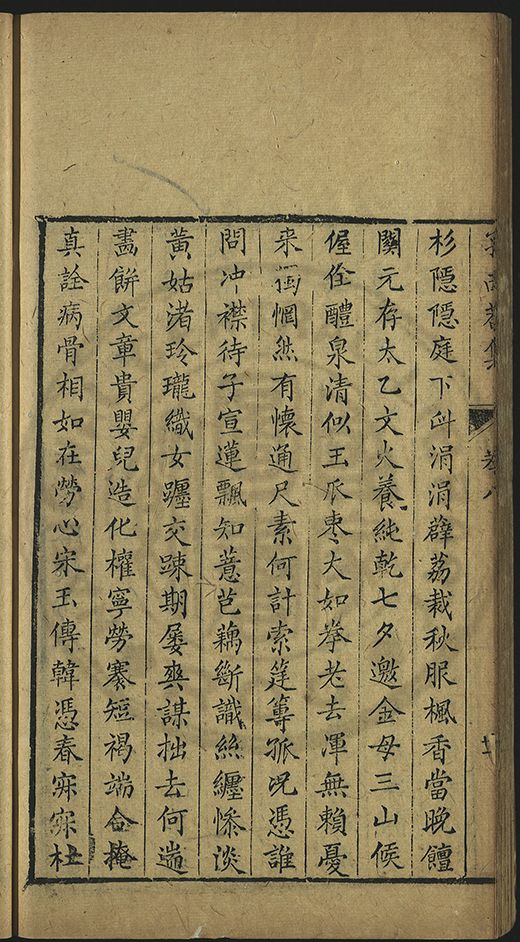 集 卷八
杉隱隱庭下涓涓薜荔裁秋服楓香當晚饘
關元存太乙文火養純乾七夕邀金母三山候
偓佺醴泉清似玉爪棗大如拳老去渾無賴憂
来惘然有懷通尺素何計索筳篿孤況憑誰
問冲襟待子宣蓮飄知薏苞藕斷識絲纒慘淡
黄姑渚玲瓏織女躔交踈期屢爽謀拙去何遄
畵餅文章貴嬰兒造化權寧勞褰短褐端合掩
真詮病骨相如在勞心宋玉傳韓憑春寂寂杜